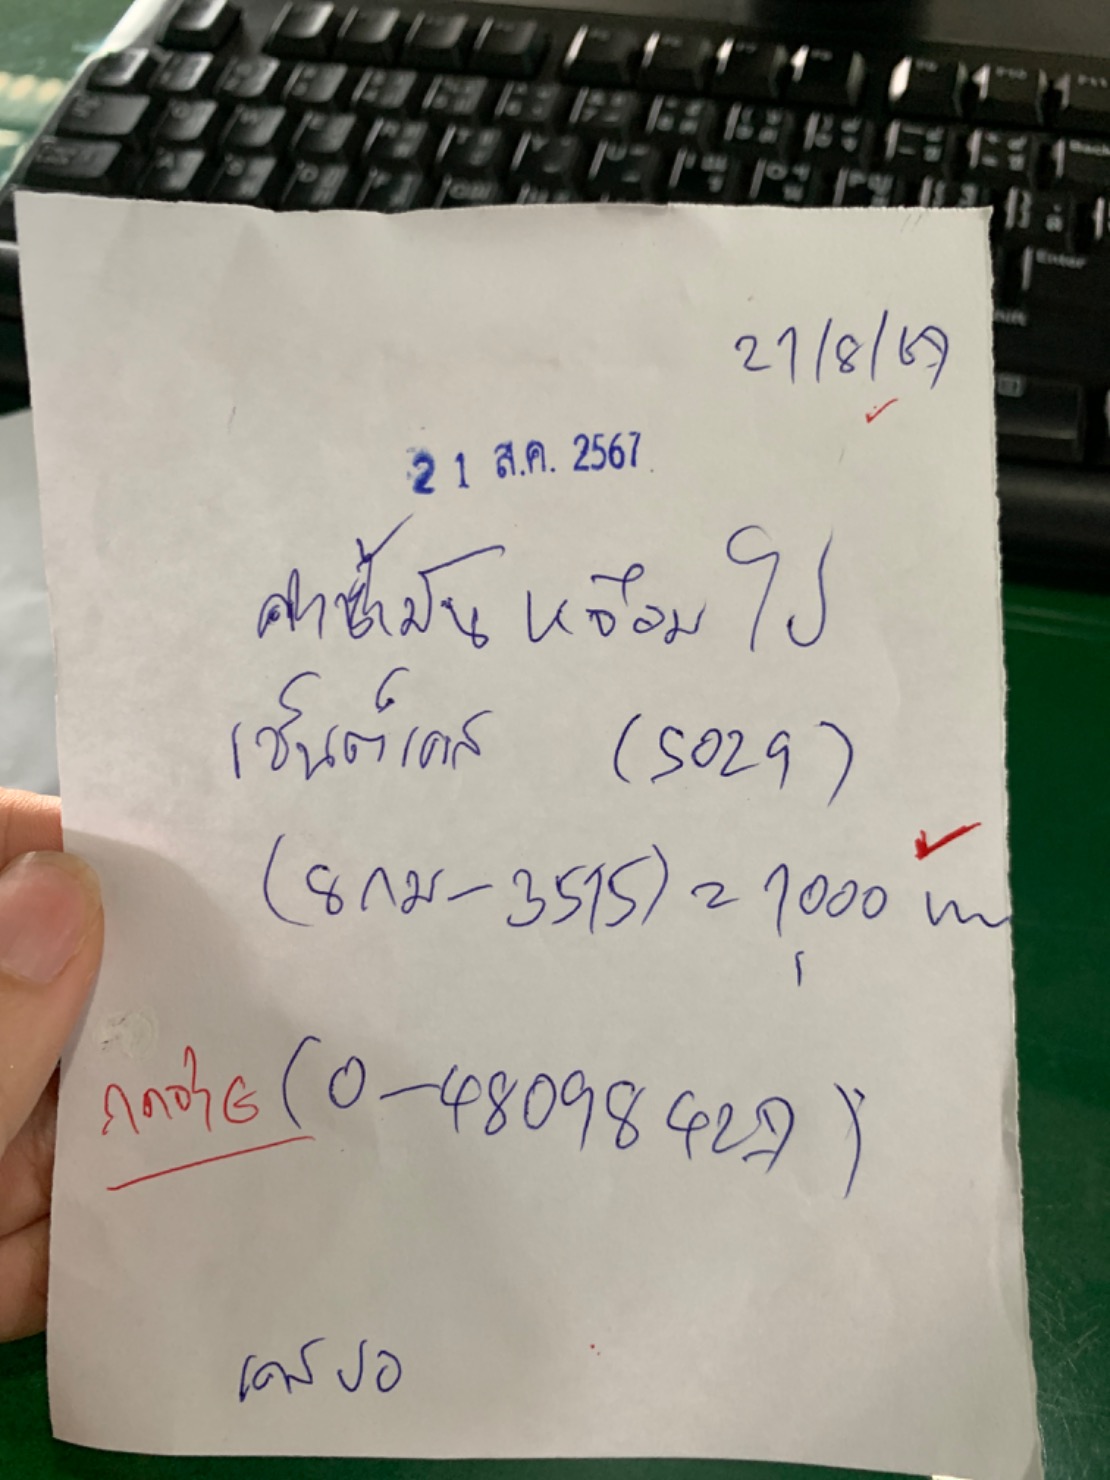 21/8/67
21 ส.ค. 2567
ค่าน้ำมัน หจือม ไป
เซ็นต์เคส (5029)
(8กม-3515) = 1000
(0-48098427)
เคส ปอ